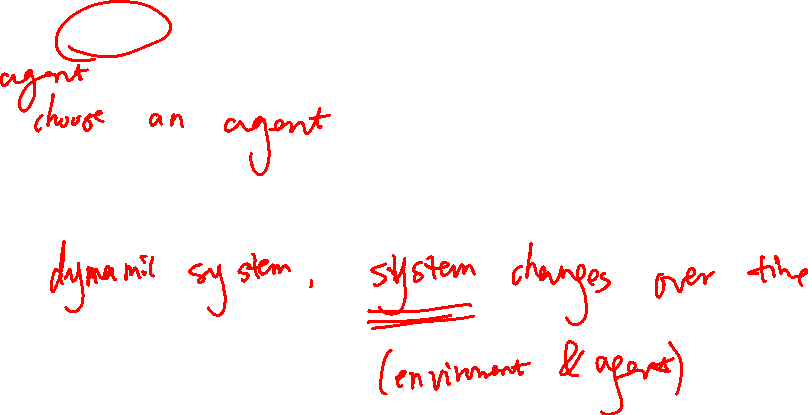 agent
choose an agent
dynamic system, system changes over time
(enviroment & agent)